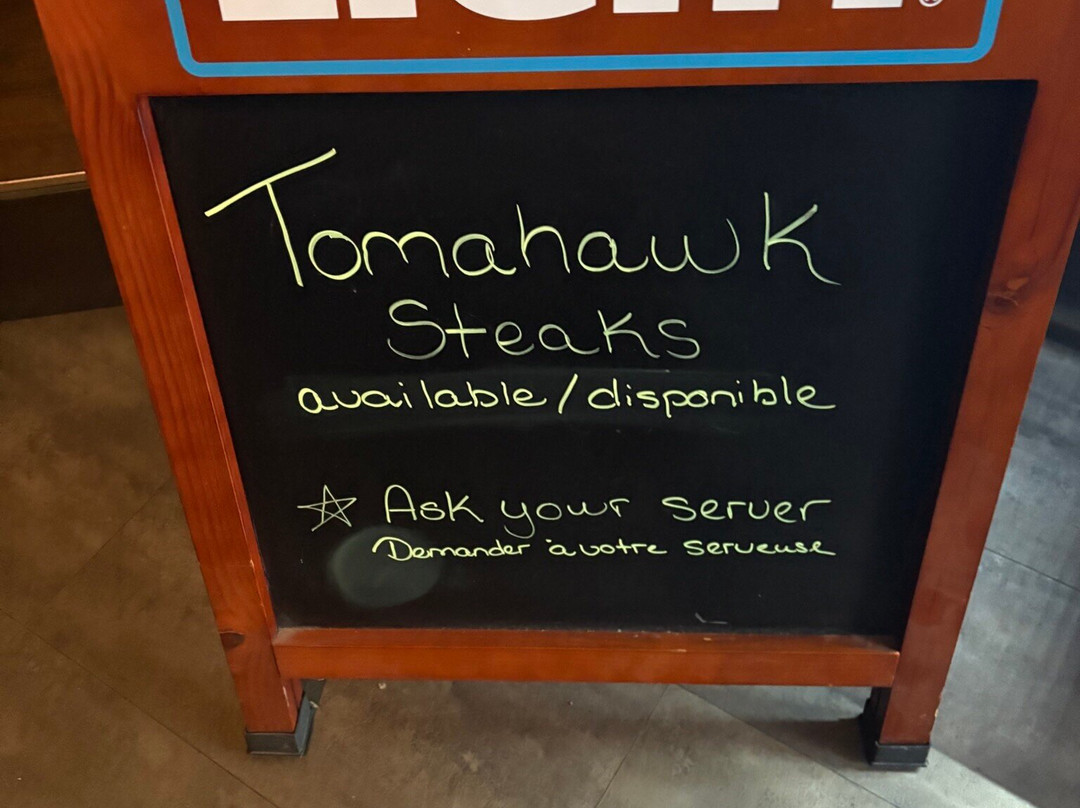 Tomahawk
Steaks
available/disponible
Ask your server
Demander à votre serveuse